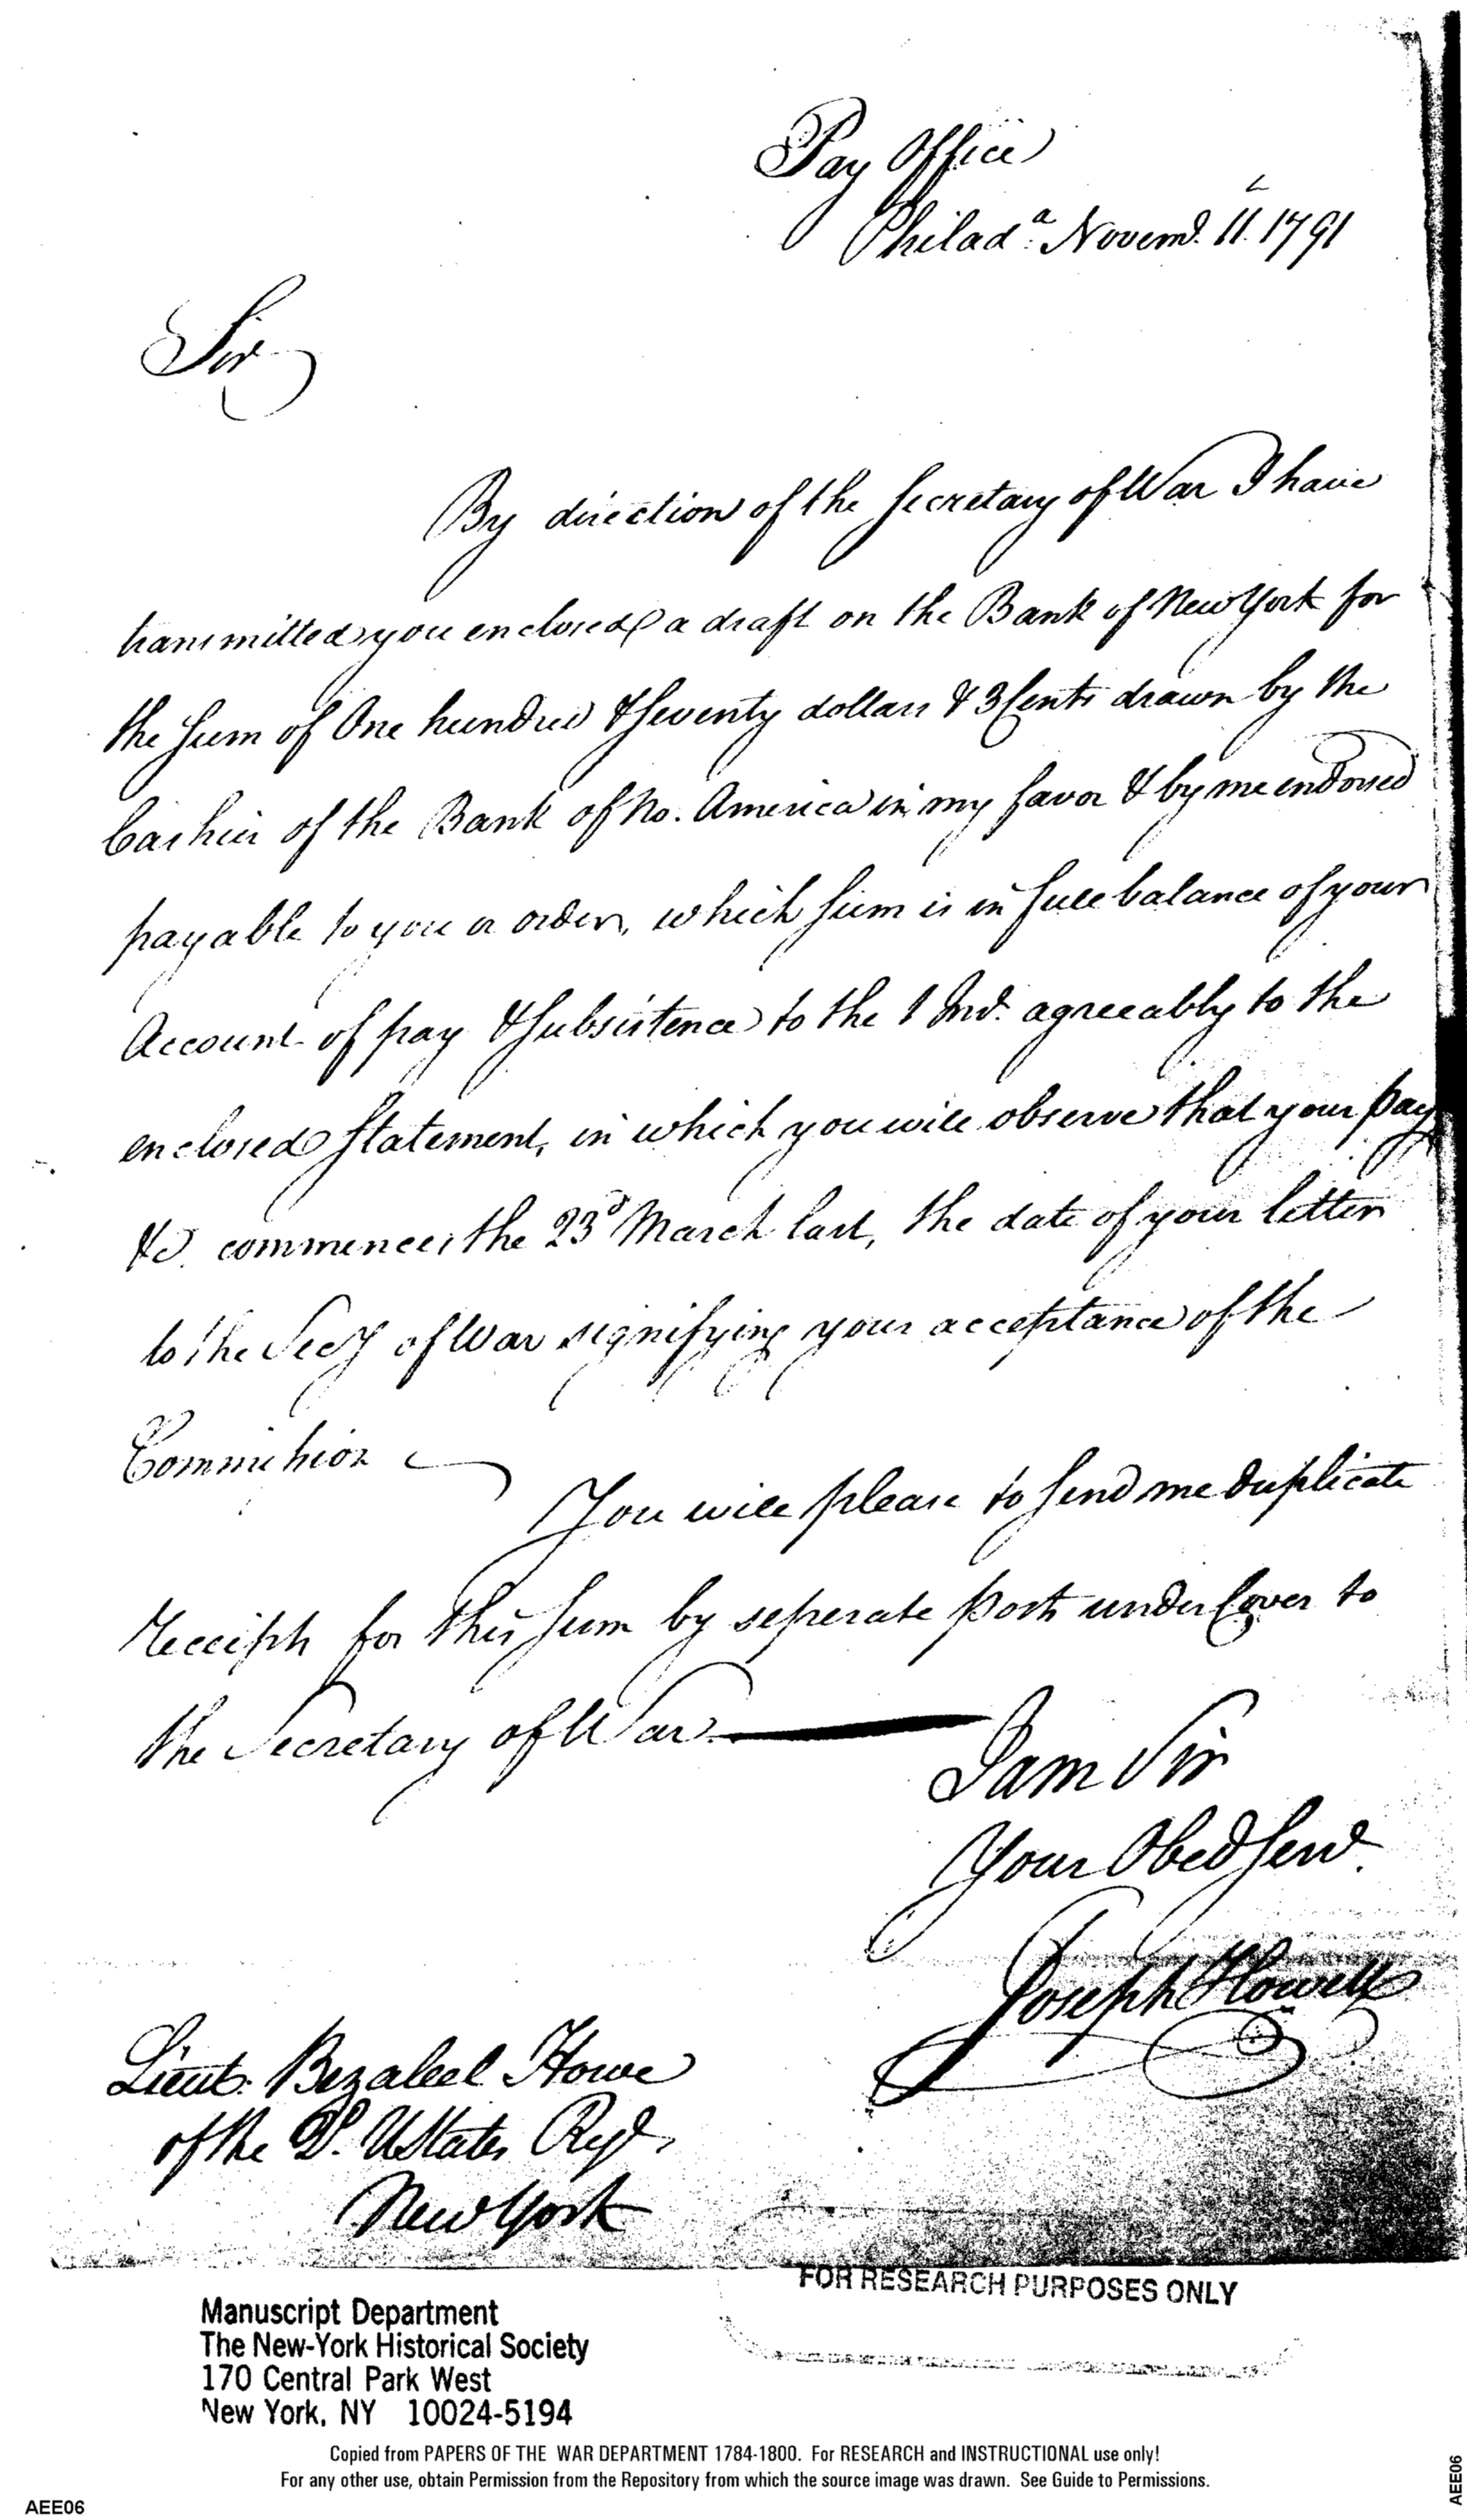 Pay Office
Philad.a Novemr. 11. 1791
Sir
By direction of the Secretary of War I have
transmitted you enclosed a draft on the Bank of New York for
the Sum of One hundred & Seventy dollars & 3 Cents drawn by the
Cashier of the Bank of No. America in my favor & by me endorsed
payable to you or order, which Sum is in full balance of your
Account of pay & Subsistence to the 1 Inst. agreeably to the
enclosed Statement, in which you will observe that your pay
&c. commences the 23d March last, the date of your letter
to the Secy of War signifying your acceptance of the
Commission
You will please to Send me duplicate
receipts for this Sum by seperate posts under Cover to
the Secretary of War
I am Sir
Your Obed Servt.
Joseph Howell
Lieut. Bezaleel Howe
of the 2d. UStates Regt.
New York
FOR RESEARCH PURPOSES ONLY
Manuscript Department
The New-York Historical Society
170 Central Park West
New York, NY 10024-5194
Copied from PAPERS OF THE WAR DEPARTMENT 1784-1800. For RESEARCH and INSTRUCTIONAL use only!
For any other use, obtain Permission from the Repository from which the source image was drawn. See Guide to Permissions.
AEE06
AEE06